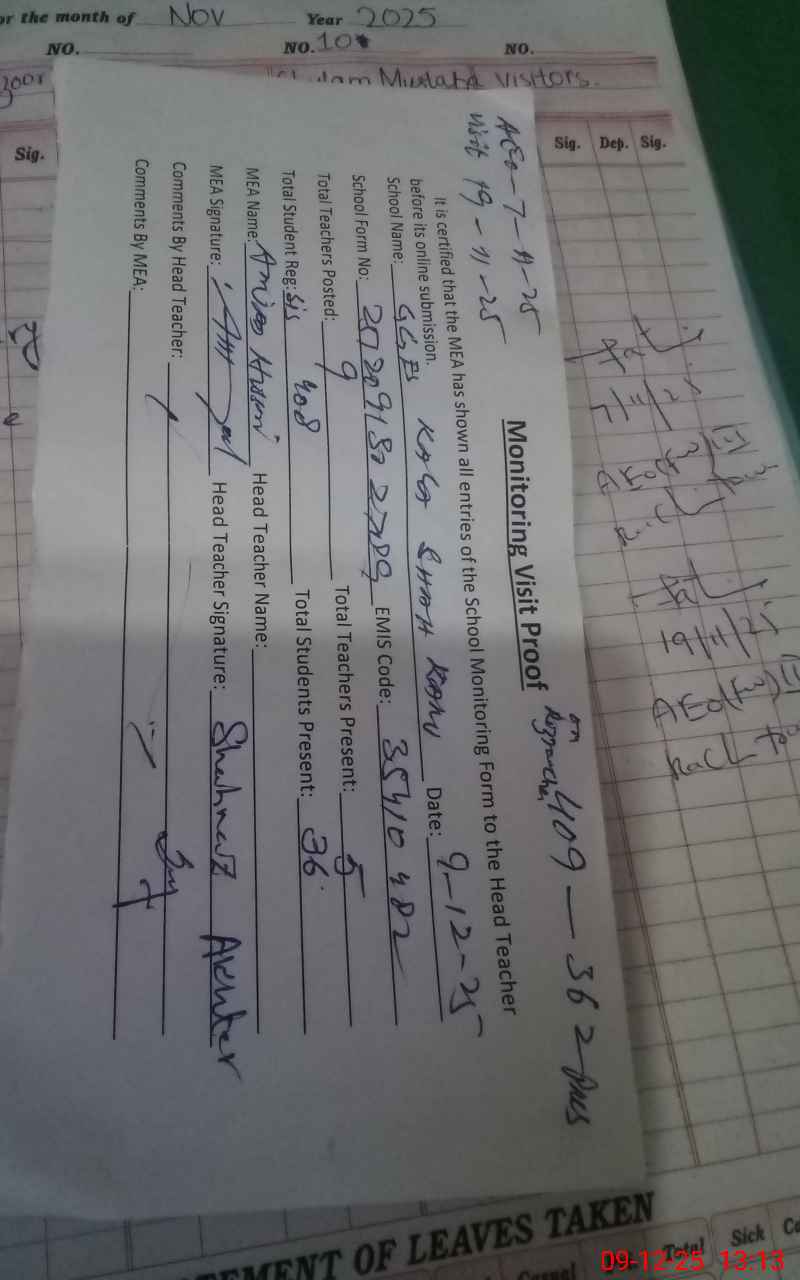 or the month of Nov Year 2025
NO. NO. 10 NO.
Mustafa Visitors.
Sig. Sig. Dep. Sig.
AEO-7-11-25
visit 19-11-25
on 409 — 362
Monitoring Visit Proof
It is certified that the MEA has shown all entries of the School Monitoring Form to the Head Teacher
before its online submission.
School Name: GGES Date: 9-12-25
School Form No: EMIS Code: 35410482
Total Teachers Posted: 9 Total Teachers Present: 5
Total Student Reg: Sis 408 Total Students Present: 36
MEA Name: Head Teacher Name:
MEA Signature: Head Teacher Signature: Shahnaz Akhter
Comments By Head Teacher:
Comments By MEA:
19/11/25
AEO
EMENT OF LEAVES TAKEN
Casual Total Sick
09-12-25 13:13